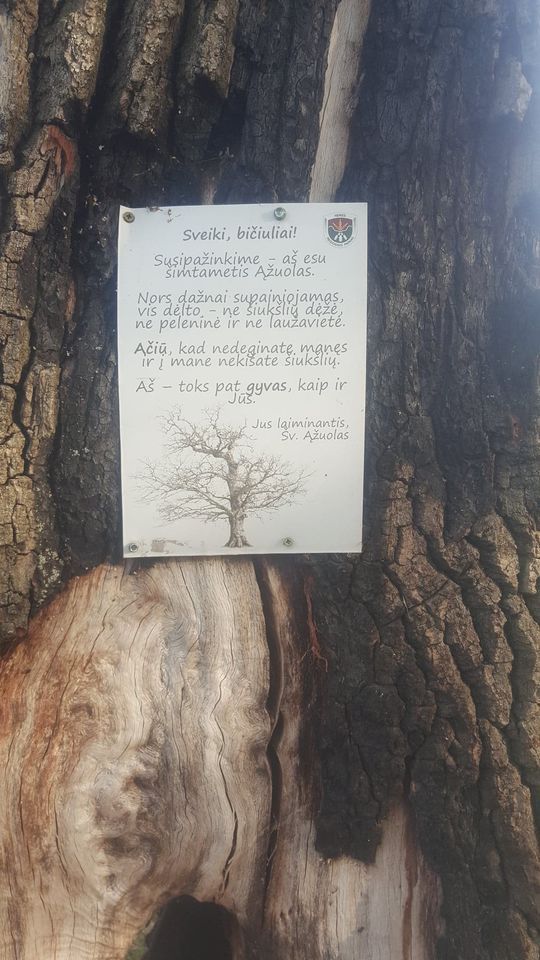 Sveiki, bičiuliai!
Susipažinkime – aš esu
šimtametis Ąžuolas.
Nors dažnai supainiojamas,
vis dėlto – ne šiukšlių dėžė,
ne peleninė ir ne laužavietė.
Ačiū, kad nedeginate manęs
ir į mane nekišate šiukšlių.
Aš – toks pat gyvas, kaip ir
Jūs.
Jus laiminantis,
Šv. Ąžuolas